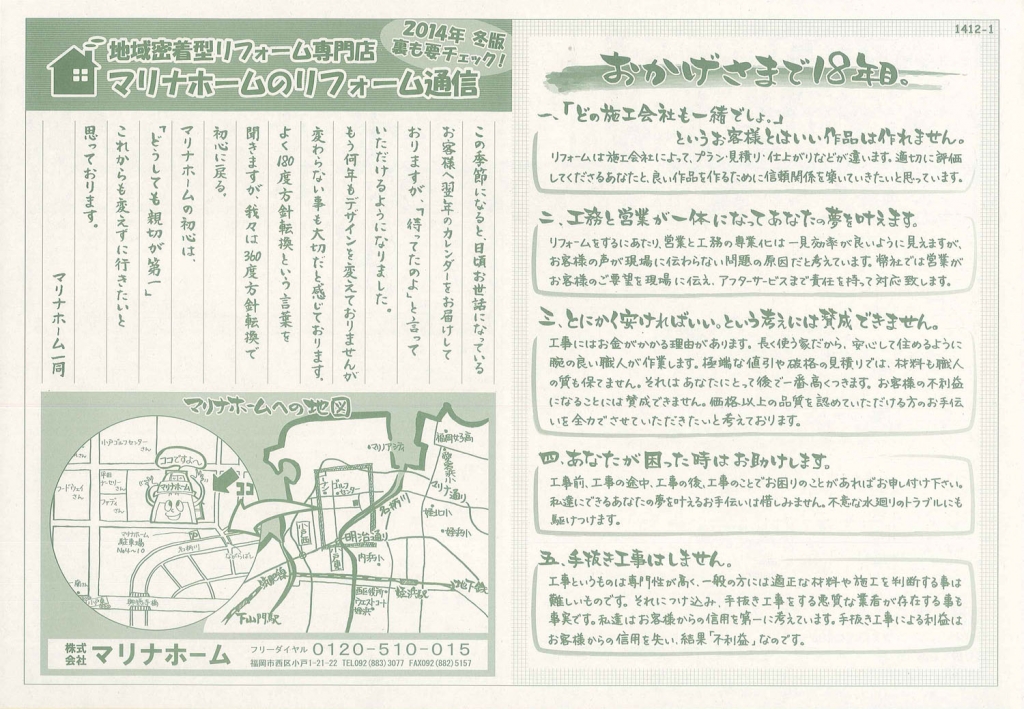 地域密着型リフォーム専門店
マリナホームのリフォーム通信
2014年 冬版
裏も要チェック!
この季節になると、日頃お世話になっている
お客様へ翌年のカレンダーをお届けして
おりますが、「待ってたのよ」と言って
いただけるようになりました。
もう何年もデザインを変えておりませんが
変わらない事も大切だと感じております。
よく180度方針転換という言葉を
聞きますが、我々は360度方針転換で
初心に戻る。
マリナホームの初心は、
「どうしても親切が第一」
これからも変えずに行きたいと
思っております。
マリナホーム一同
マリナホームへの地図
小戸ゴルフセンターさん
ココですよ〜
マリナホーム
ココ
フードウェイさん
マリナホーム
駐車場
No.4〜10
名柄川
マリアシティ
福岡女子高
ゴルフセンター
名柄川
明治通り
小戸西
小戸東
内浜小
姪北小
姪浜小
西区役所
ウエストコート姪浜
姪浜駅
地下鉄
筑肥線
下山門駅
株式会社 マリナホーム
フリーダイヤル 0120-510-015
福岡市西区小戸1-21-22 TEL092(883)3077 FAX092(882)5157
1412-1
おかげさまで18年目。
一、「どの施工会社も一緒でしょ。」
というお客様とはいい作品は作れません。
リフォームは施工会社によって、プラン・見積り・仕上がりなどが違います。適切に評価
してくださるあなたと、良い作品を作るために信頼関係を築いていきたいと思っています。
二、工務と営業が一体になってあなたの夢を叶えます。
リフォームをするにあたり、営業と工務の専業化は一見効率が良いように見えますが、
お客様の声が現場に伝わらない問題の原因だと考えています。弊社では営業が
お客様のご要望を現場に伝え、アフターサービスまで責任を持って対応致します。
三、とにかく安ければいい。という考えには賛成できません。
工事にはお金がかかる理由があります。長く使う家だから、安心して住めるように
腕の良い職人が作業します。極端な値引や破格の見積りでは、材料も職人
の質も保てません。それはあなたにとって後で一番高くつきます。お客様の不利益
になることには賛成できません。価格以上の品質を認めていただける方のお手伝
いを全力でさせていただきたいと考えております。
四、あなたが困った時はお助けします。
工事前、工事の途中、工事の後、工事のことでお困りのことがあればお申し付け下さい。
私達にできるあなたの夢を叶えるお手伝いは惜しみません。不意な水廻りのトラブルにも
駆けつけます。
五、手抜き工事はしません。
工事というものは専門性が高く、一般の方には適正な材料や施工を判断する事は
難しいものです。それにつけ込み、手抜き工事をする悪質な業者が存在する事も
事実です。私達はお客様からの信用を第一に考えています。手抜き工事による利益は
お客様からの信用を失い、結果「不利益」なのです。